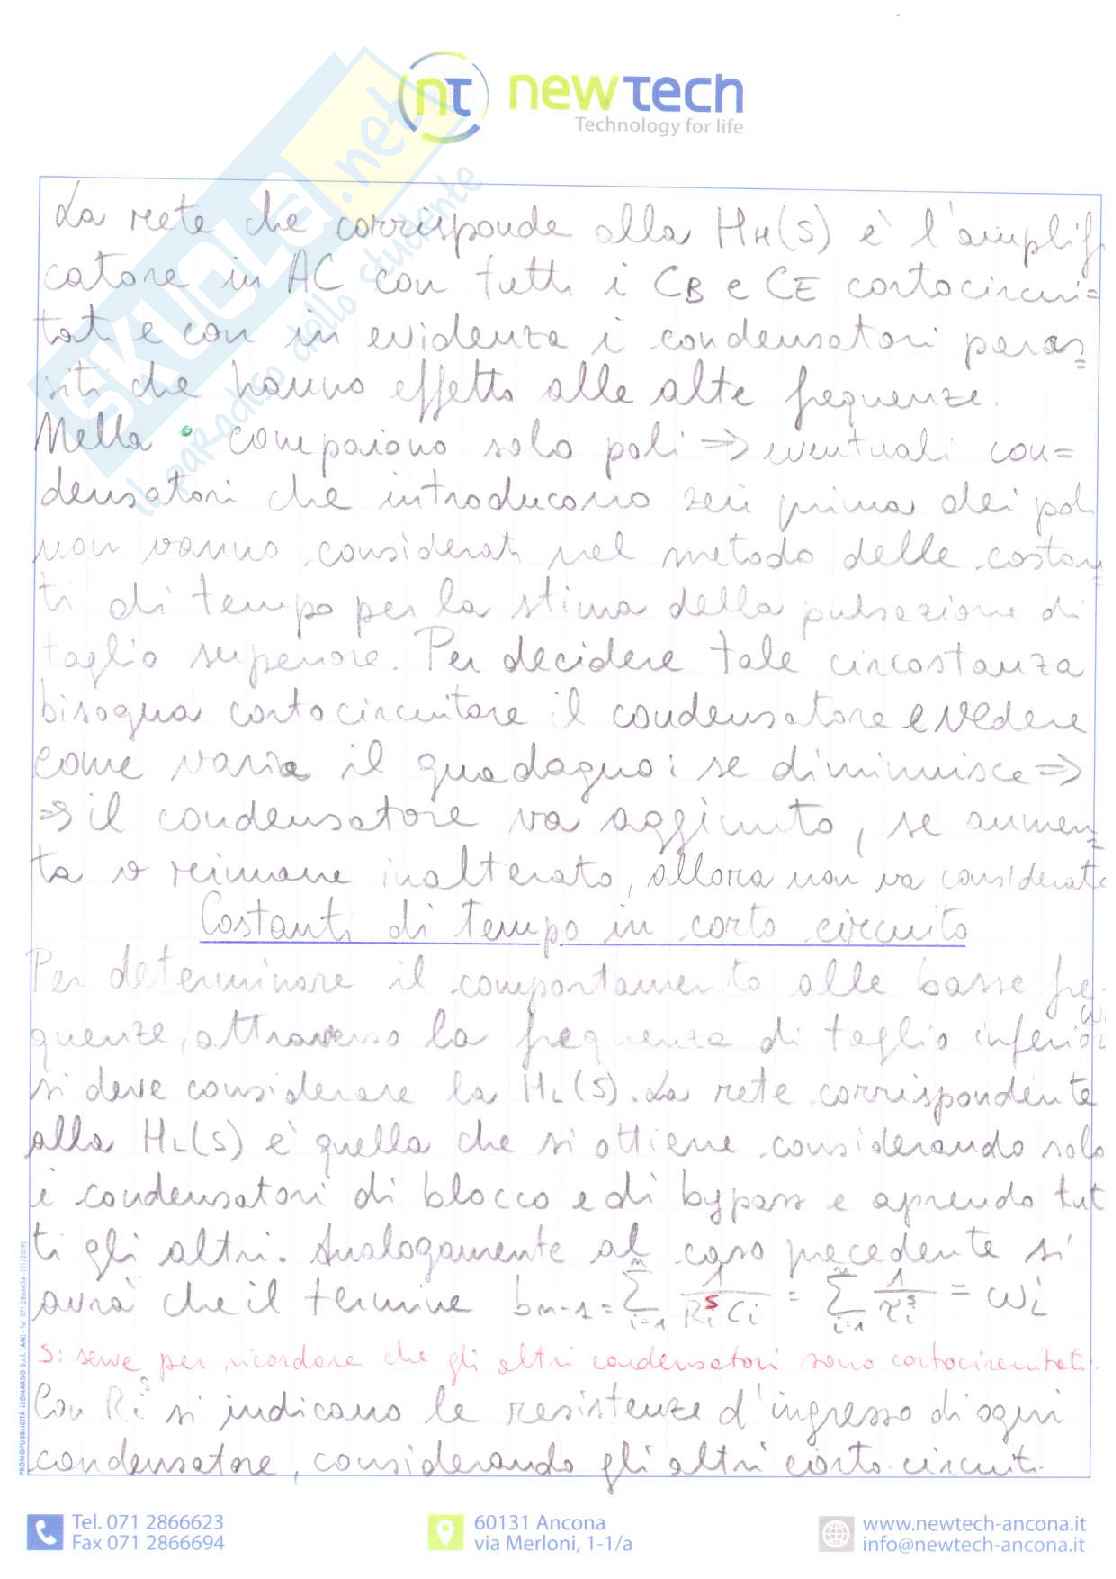 nτ newtech
Technology for life
SKUOLA.net
il paradiso dello studente
La rete che corrisponde alla HH(s) è l'amplifi
catore in AC con tutti i CB e CE cortocircui=
tati e con in evidenza i condensatori paras=
siti che hanno effetto alle alte frequenze.
Nella • compaiono solo poli => eventuali con=
densatori che introducono zeri prima dei poli
non vanno considerati nel metodo delle costan=
ti di tempo per la stima della pulsazione di
taglio superiore. Per decidere tale circostanza
bisogna cortocircuitare il condensatore e vedere
come varia il guadagno: se diminuisce =>
=> il condensatore va aggiunto, se aumen=
ta o rimane inalterato, allora non va considerato
Costanti di tempo in corto circuito
Per determinare il comportamento alle basse fre-
quenze, attraverso la frequenza di taglio inferiore
si deve considerare la HL(s). La rete corrispondente
alla HL(s) è quella che si ottiene considerando solo
i condensatori di blocco e di bypass e aprendo tut
ti gli altri. Analogamente al caso precedente si
avrà che il termine bm-1 = Σ(i=1..m) 1/(Ri^s Ci) = Σ(i=1..m) 1/τi^s = ωi
S: serve per ricordare che gli altri condensatori sono cortocircuitati.
Con Ri^s si indicano le resistenze d'ingresso di ogni
condensatore, considerando gli altri corto-circuiti.
Tel. 071 2866623
Fax 071 2866694
60131 Ancona
via Merloni, 1-1/a
www.newtech-ancona.it
info@newtech-ancona.it